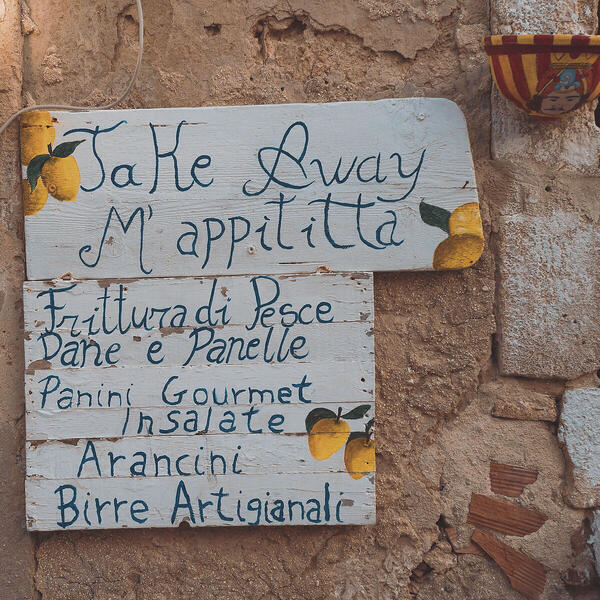 Take Away
M'appititta
Frittura di Pesce
Pane e Panelle
Panini Gourmet
Insalate
Arancini
Birre Artigianali